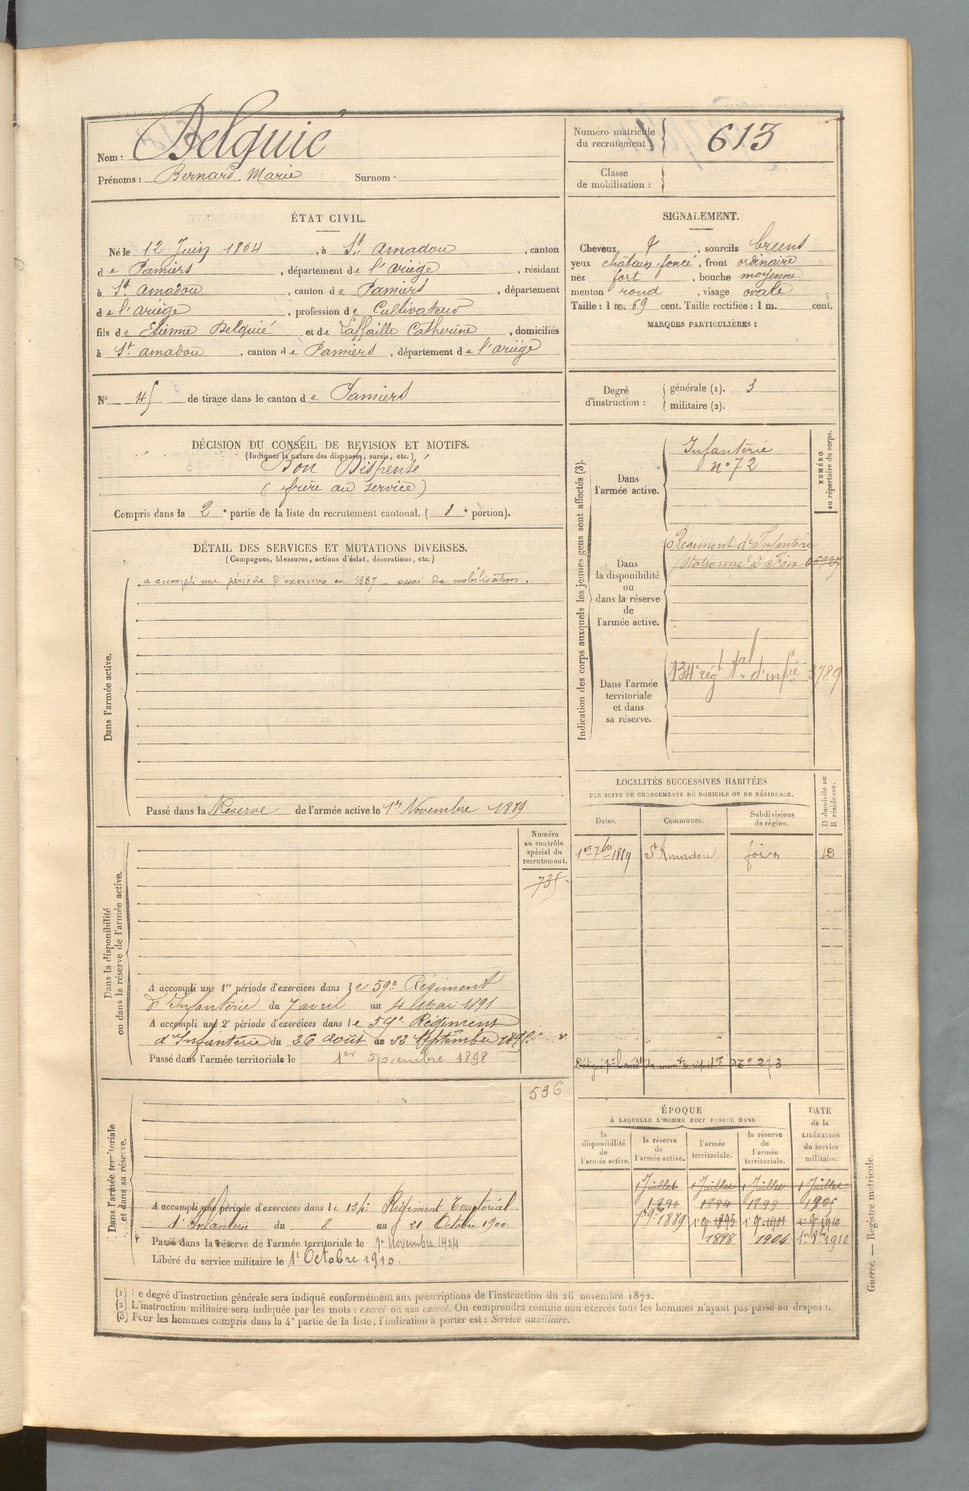 Nom : Delquié
Prénoms : Bernard Marie Surnom :
Numéro matricule du recrutement 613
Classe de mobilisation :
ÉTAT CIVIL.
Né le 12 Juin 1864, à St. Amadou, canton
de Pamiers, département de l'ariège, résidant
à St amadou, canton de Pamiers, département
de l'ariège, profession de Cultivateur
fils de Etienne Delquié et de Laffaille Catherine, domiciliés
à St. amadou, canton de Pamiers, département de l'ariège
SIGNALEMENT.
Cheveux, sourcils bruns
yeux châtain foncé, front ordinaire
nez fort, bouche moyenne
menton rond, visage ovale
Taille : 1 m. 69 cent. Taille rectifiée : 1 m. cent.
MARQUES PARTICULIÈRES :
N° 45 de tirage dans le canton de Pamiers
Degré d'instruction : générale (1). 3
militaire (2).
DÉCISION DU CONSEIL DE REVISION ET MOTIFS.
(Indiquer la nature des dispenses, sursis, etc.)
Bon Dispensé
(frère au service)
Compris dans la 2e partie de la liste du recrutement cantonal. (1e portion).
DÉTAIL DES SERVICES ET MUTATIONS DIVERSES.
(Campagnes, blessures, actions d'éclat, décorations, etc.)
Dans l'armée active.
a accompli une période d'exercices en 1887 essai de mobilisation.
Passé dans la Réserve de l'armée active le 1er Novembre 1889
Indication des corps auxquels les jeunes gens sont affectés (3).
NUMÉRO au répertoire du corps.
Dans l'armée active.
Infanterie
n° 72
Dans la disponibilité ou dans la réserve de l'armée active.
Régiment d'Infanterie
stationné à Foix
Dans l'armée territoriale et dans sa réserve.
134e rég t Tal d'infie 3789
LOCALITÉS SUCCESSIVES HABITÉES
PAR SUITE DE CHANGEMENTS DE DOMICILE OU DE RÉSIDENCE.
Dates. Communes. Subdivisions de région. D domicile ou R résidence.
1er 7bre 1889 St Amadou foix D
Numéro au contrôle spécial du recrutement.
735
Dans la disponibilité ou dans la réserve de l'armée active.
A accompli une 1re période d'exercices dans le 59e Régiment
d'Infanterie du 7 avril au 4 Mai 1891
A accompli une 2e période d'exercices dans le 59e Régiment
d'Infanterie du 26 août au Septembre
Passé dans l'armée territoriale le 1er Novembre 1898
536
Dans l'armée territoriale et dans sa réserve.
A accompli une période d'exercices dans le 134e Régiment Territorial
d'Infanterie du 8 au 21 Octobre 1900
Passé dans la réserve de l'armée territoriale le 1er Novembre 1904
Libéré du service militaire le 1er Octobre 1910.
ÉPOQUE
À LAQUELLE L'HOMME DOIT PASSER DANS
la disponibilité de l'armée active. la réserve de l'armée active. l'armée territoriale. la réserve de l'armée territoriale.
DATE de la LIBÉRATION du service militaire.
1 Juillet 1 Juillet 1 Juillet 1 Juillet
1890 1894 1899 1905
1889
1898 1904 1910
(1) Le degré d'instruction générale sera indiqué conformément aux prescriptions de l'instruction du 26 novembre 1872.
(2) L'instruction militaire sera indiquée par les mots : exercé ou non exercé. On comprendra comme non exercés tous les hommes n'ayant pas passé au drapeau.
(3) Pour les hommes compris dans la 4e partie de la liste, l'indication à porter est : Service auxiliaire.
Guerre. — Registre matricule.